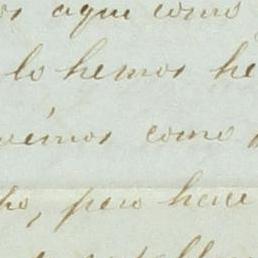 os aqui como
lo hemos he
vémos como
ho, pero hace